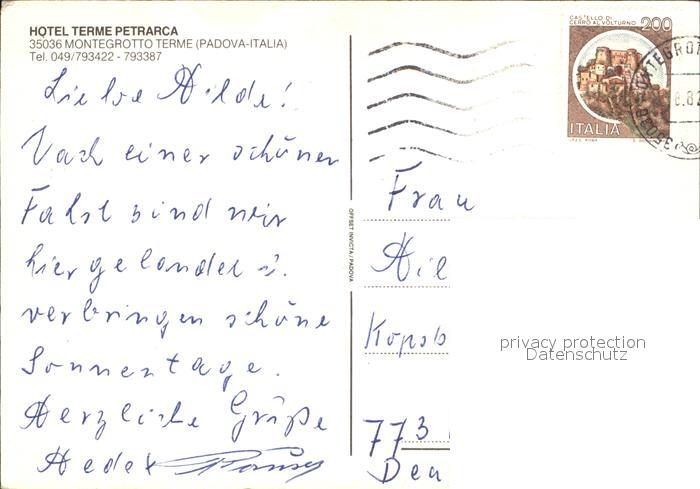 HOTEL TERME PETRARCA
35036 MONTEGROTTO TERME (PADOVA-ITALIA)
Tel. 049/793422 - 793387
Liebe Hilde!
Nach einer schönen
Fahrt sind wir
hier gelandet u.
verbringen schöne
Sonnentage.
Herzliche Grüße
OFFSET INVICTA/PADOVA
CASTELLO DI
CERRO AL VOLTURNO
200
ITALIA
Frau
Hil
773
Deu
privacy protection
Datenschutz